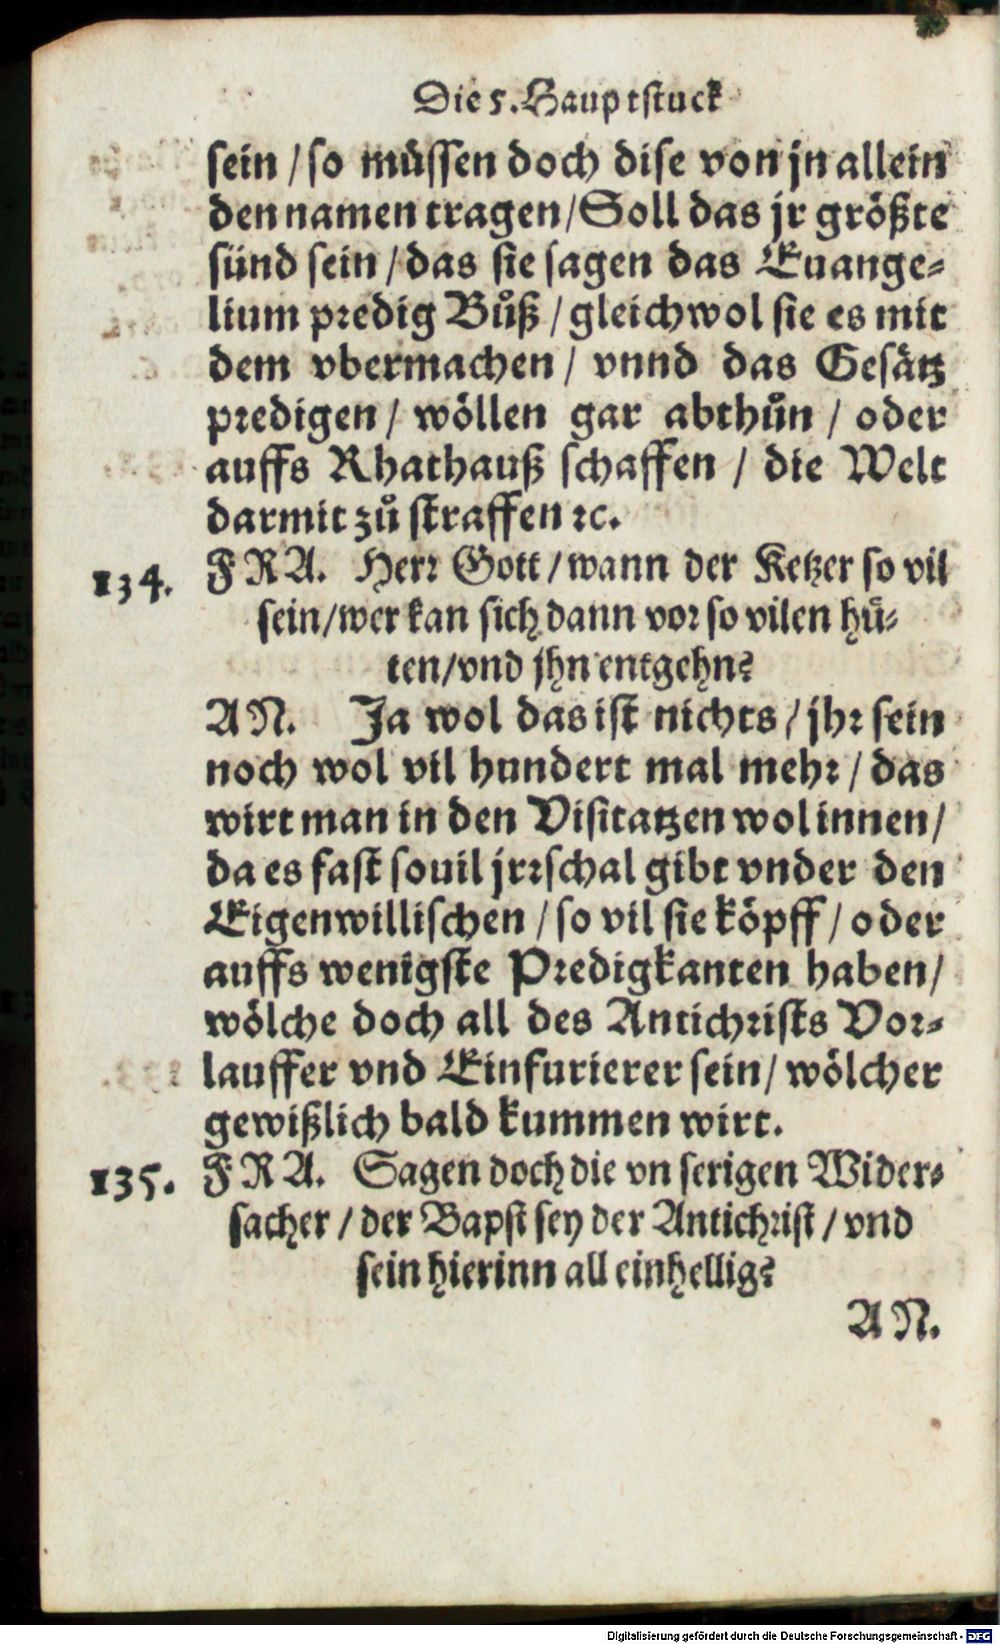 Die 5. Hauptstuck
sein / so müssen doch dise von jn allein
den namen tragen / Soll das jr größte
sünd sein / das sie sagen das Euange-
lium predig Bůß / gleichwol sie es mit
dem vbermachen / vnnd das Gesätz
predigen / wöllen gar abthůn / oder
auffs Rhathauß schaffen / die Welt
darmit zů straffen ꝛc.
134. FRA. Herr Gott / wann der Ketzer so vil
sein / wer kan sich dann vor so vilen hü-
ten / vnd jhn entgehn?
AN. Ja wol das ist nichts / jhr sein
noch wol vil hundert mal mehr / das
wirt man in den Visitatzen wol innen /
da es fast souil jrrschal gibt vnder den
Eigenwillischen / so vil sie köpff / oder
auffs wenigste Predigkanten haben /
wölche doch all des Antichrists Vor-
lauffer vnd Einfurierer sein / wölcher
gewißlich bald kummen wirt.
135. FRA. Sagen doch die vnserigen Wider-
sacher / der Bapst sey der Antichrist / vnd
sein hierinn all einhellig?
AN.
Digitalisierung gefördert durch die Deutsche Forschungsgemeinschaft - DFG